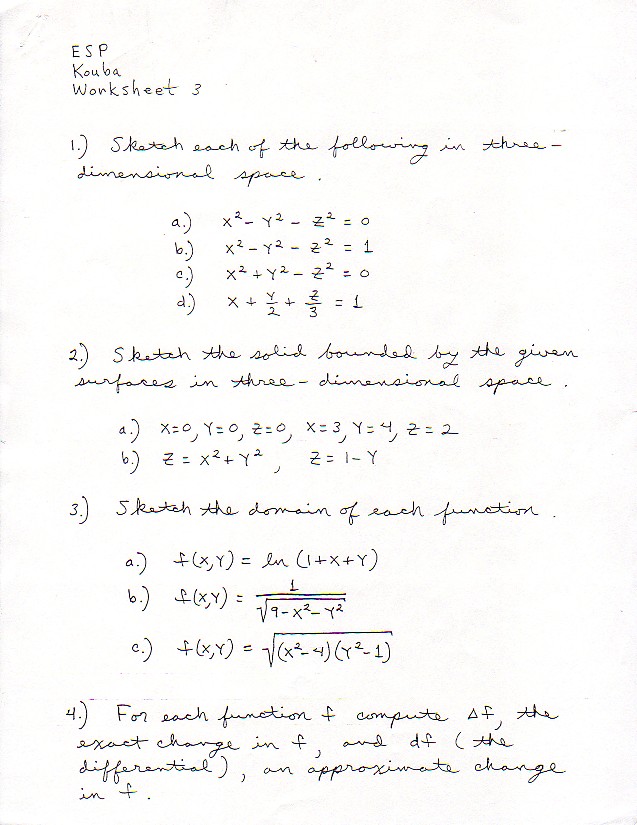 ESP
Kouba
Worksheet 3
1.) Sketch each of the following in three-
dimensional space.
a.) x² - y² - z² = 0
b.) x² - y² - z² = 1
c.) x² + y² - z² = 0
d.) x + y/2 + z/3 = 1
2.) Sketch the solid bounded by the given
surfaces in three-dimensional space.
a.) x=0, y=0, z=0, x=3, y=4, z=2
b.) z = x² + y², z = 1-y
3.) Sketch the domain of each function.
a.) f(x,y) = ln (1+x+y)
b.) f(x,y) = 1/√(9-x²-y²)
c.) f(x,y) = √((x²-4)(y²-1))
4.) For each function f compute Δf, the
exact change in f, and df (the
differential), an approximate change
in f.